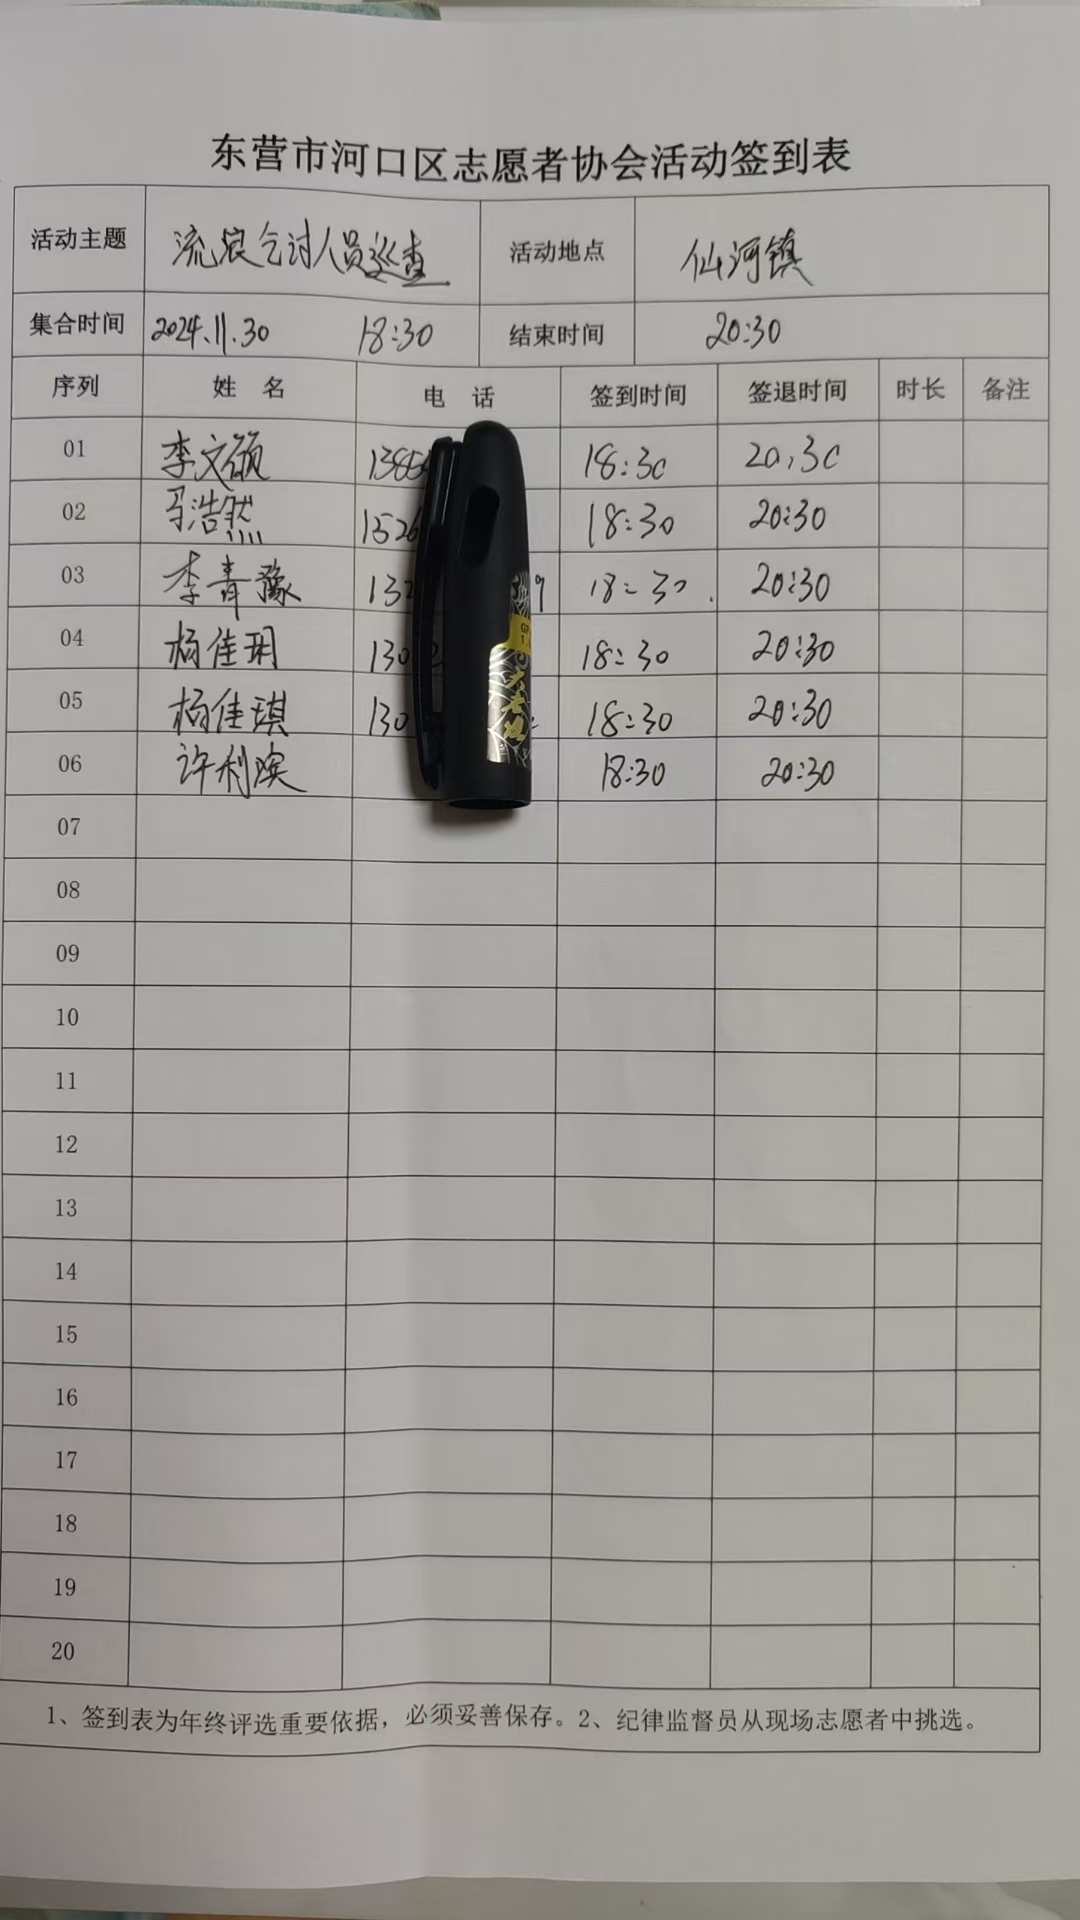 东营市河口区志愿者协会活动签到表
活动主题 流浪乞讨人员巡查 活动地点 仙河镇
集合时间 2024.11.30 18:30 结束时间 20:30
序列 姓 名 电 话 签到时间 签退时间 时长 备注
01 李文颀 1385 18:30 20:30
02 马浩然 1526 18:30 20:30
03 李青豫 132 9 18:30 20:30
04 杨佳玥 130 18:30 20:30
05 杨佳琪 130 18:30 20:30
06 许利滨 18:30 20:30
07
08
09
10
11
12
13
14
15
16
17
18
19
20
1、签到表为年终评选重要依据，必须妥善保存。2、纪律监督员从现场志愿者中挑选。